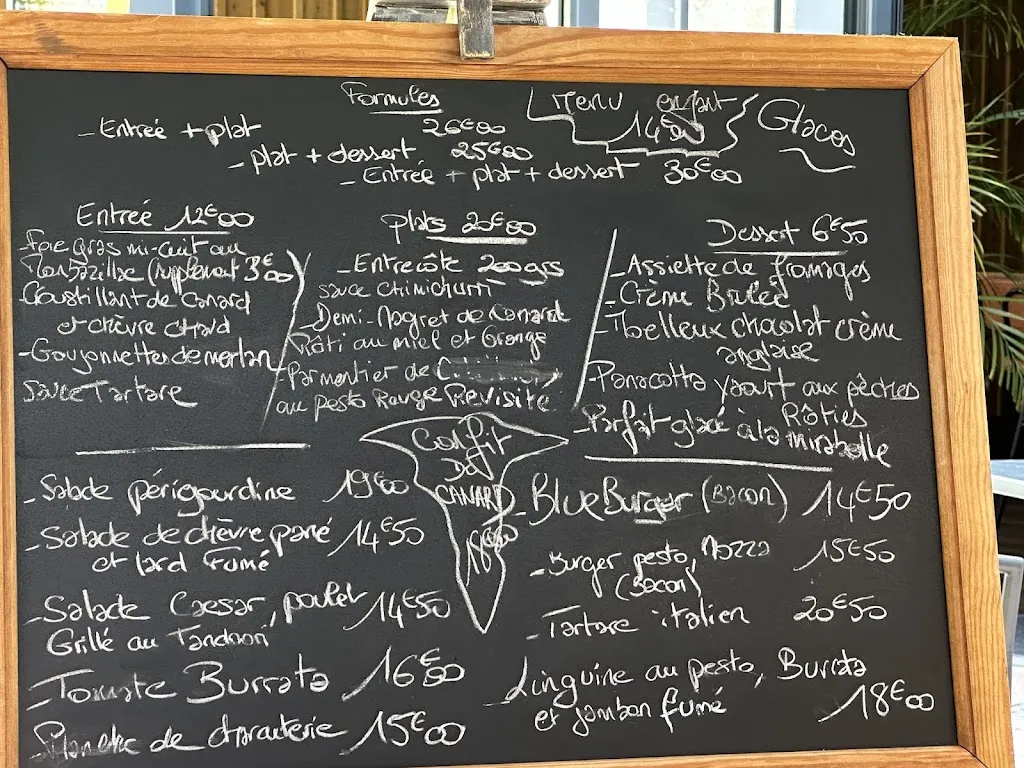 Formules
- Entrée + plat 26€00
- plat + dessert 25€00
- Entrée + plat + dessert 30€00
Menu enfant
14€00
Glaces
Entreé 12€00
- Foie gras mi-cuit au
Monbazillac (supplément 3€00)
- Croustillant de Canard
et chèvre chaud
- Goujonnettes de merlan
sauce Tartare
plats 20€00
- Entrecôte 200grs
sauce chimichurri
- Demi-Magret de Canard
Rôti au miel et Orange
- Parmentier de
au pesto Rouge Revisité
Dessert 6€50
- Assiette de fromages
- Crème Brulée
- Moelleux chocolat crème
anglaise
- Panacotta yaourt aux pêches
Rôties
- Parfait glacé à la mirabelle
- Salade périgourdine 19€00
- Salade de chèvre pané 14€50
et lard Fumé
- Salade Caesar, poulet 14€50
Grillé au Tandoori
- Tomate Burrata 16€00
- Planche de charcuterie 15€00
Confit
De
CANARD
18€00
- Blue Burger (Bacon) 14€50
- Burger pesto, Mozza 15€50
(Bacon)
- Tartare italien 20€50
- Linguine au pesto, Burrata
et jambon fumé 18€00